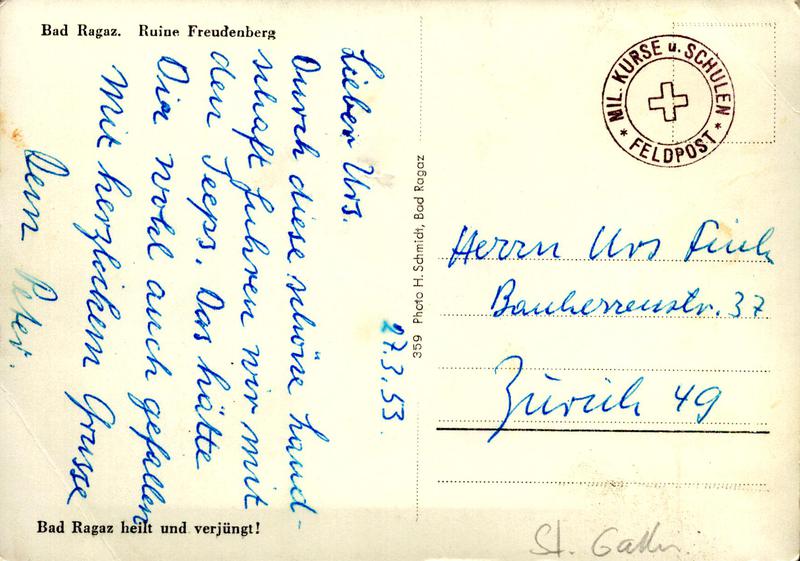 Bad Ragaz. Ruine Freudenberg
Lieber Urs.
Durch diese schöne Land-
schaft fuhren wir mit
den Jeeps. Das hätte
Dir wohl auch gefallen
Mit herzlichem Grusse
Dein Peter.
27.3.53.
Bad Ragaz heilt und verjüngt!
359 Photo H. Schmidt, Bad Ragaz
MIL. KURSE u. SCHULEN
* FELDPOST *
Herrn Urs Fink
Bauherrenstr. 37
Zürich 49
St. Gallen